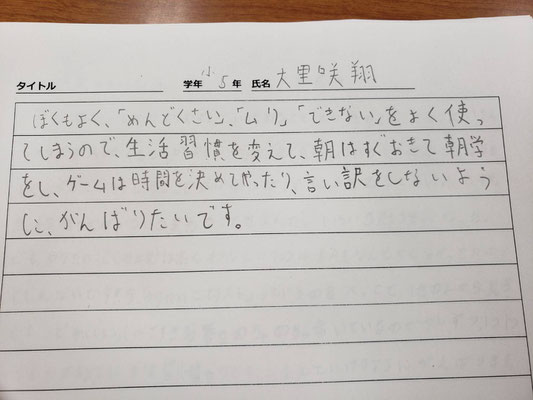 タイトル 学年 小5年 氏名 大里咲翔
ぼくもよく、「めんどくさい」、「ムリ」「できない」をよく使っ
てしまうので、生活習慣を変えて、朝はすぐおきて朝学
をし、ゲームは時間を決めてやったり、言い訳をしないよう
に、がんばりたいです。